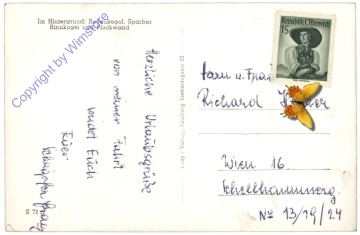 Im Hintergrund: Rettenkogel, Sparber
Rinnkogel und Bleckwand
Copyright by Wimstore
Herzliche Urlaubsgrüße
von meiner Fahrt
sendet Euch
Euer
REPUBLIK ÖSTERREICH
1 S
Herrn u. Frau
Richard
Wien 16.
Schellhammerg.
No 13/19/24
S 72